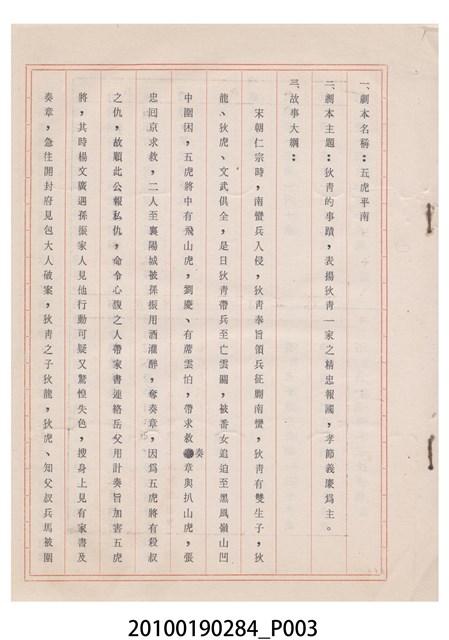 一、劇本名稱：五虎平南
二、劇本主題：狄青的事蹟，表揚狄青一家之精忠報國，孝節義廉爲主。
三、故事大綱：
宋朝仁宗時，南蠻兵入侵，狄青奉旨領兵征剿南蠻，狄青有雙生子，狄
龍、狄虎、文武俱全，是日狄青帶兵至亡雲關，被番女追迫至黑風嶺山凹
中圍困，五虎將中有飛山虎，劉慶、有蓆雲怕，帶求救奏章與扒山虎，張
忠回京求救，二人至襄陽城被孫振用酒灌醉，奪奏章，因爲五虎將有殺叔
之仇，故順此公報私仇，命令心腹之人帶家書連絡岳父用計奏旨加害五虎
將，其時楊文廣遇孫振家人見他行動可疑又驚惶失色，搜身上見有家書及
奏章，急往開封府見包大人破案，狄青之子狄龍，狄虎、知父叔兵馬被圍
20100190284_P003